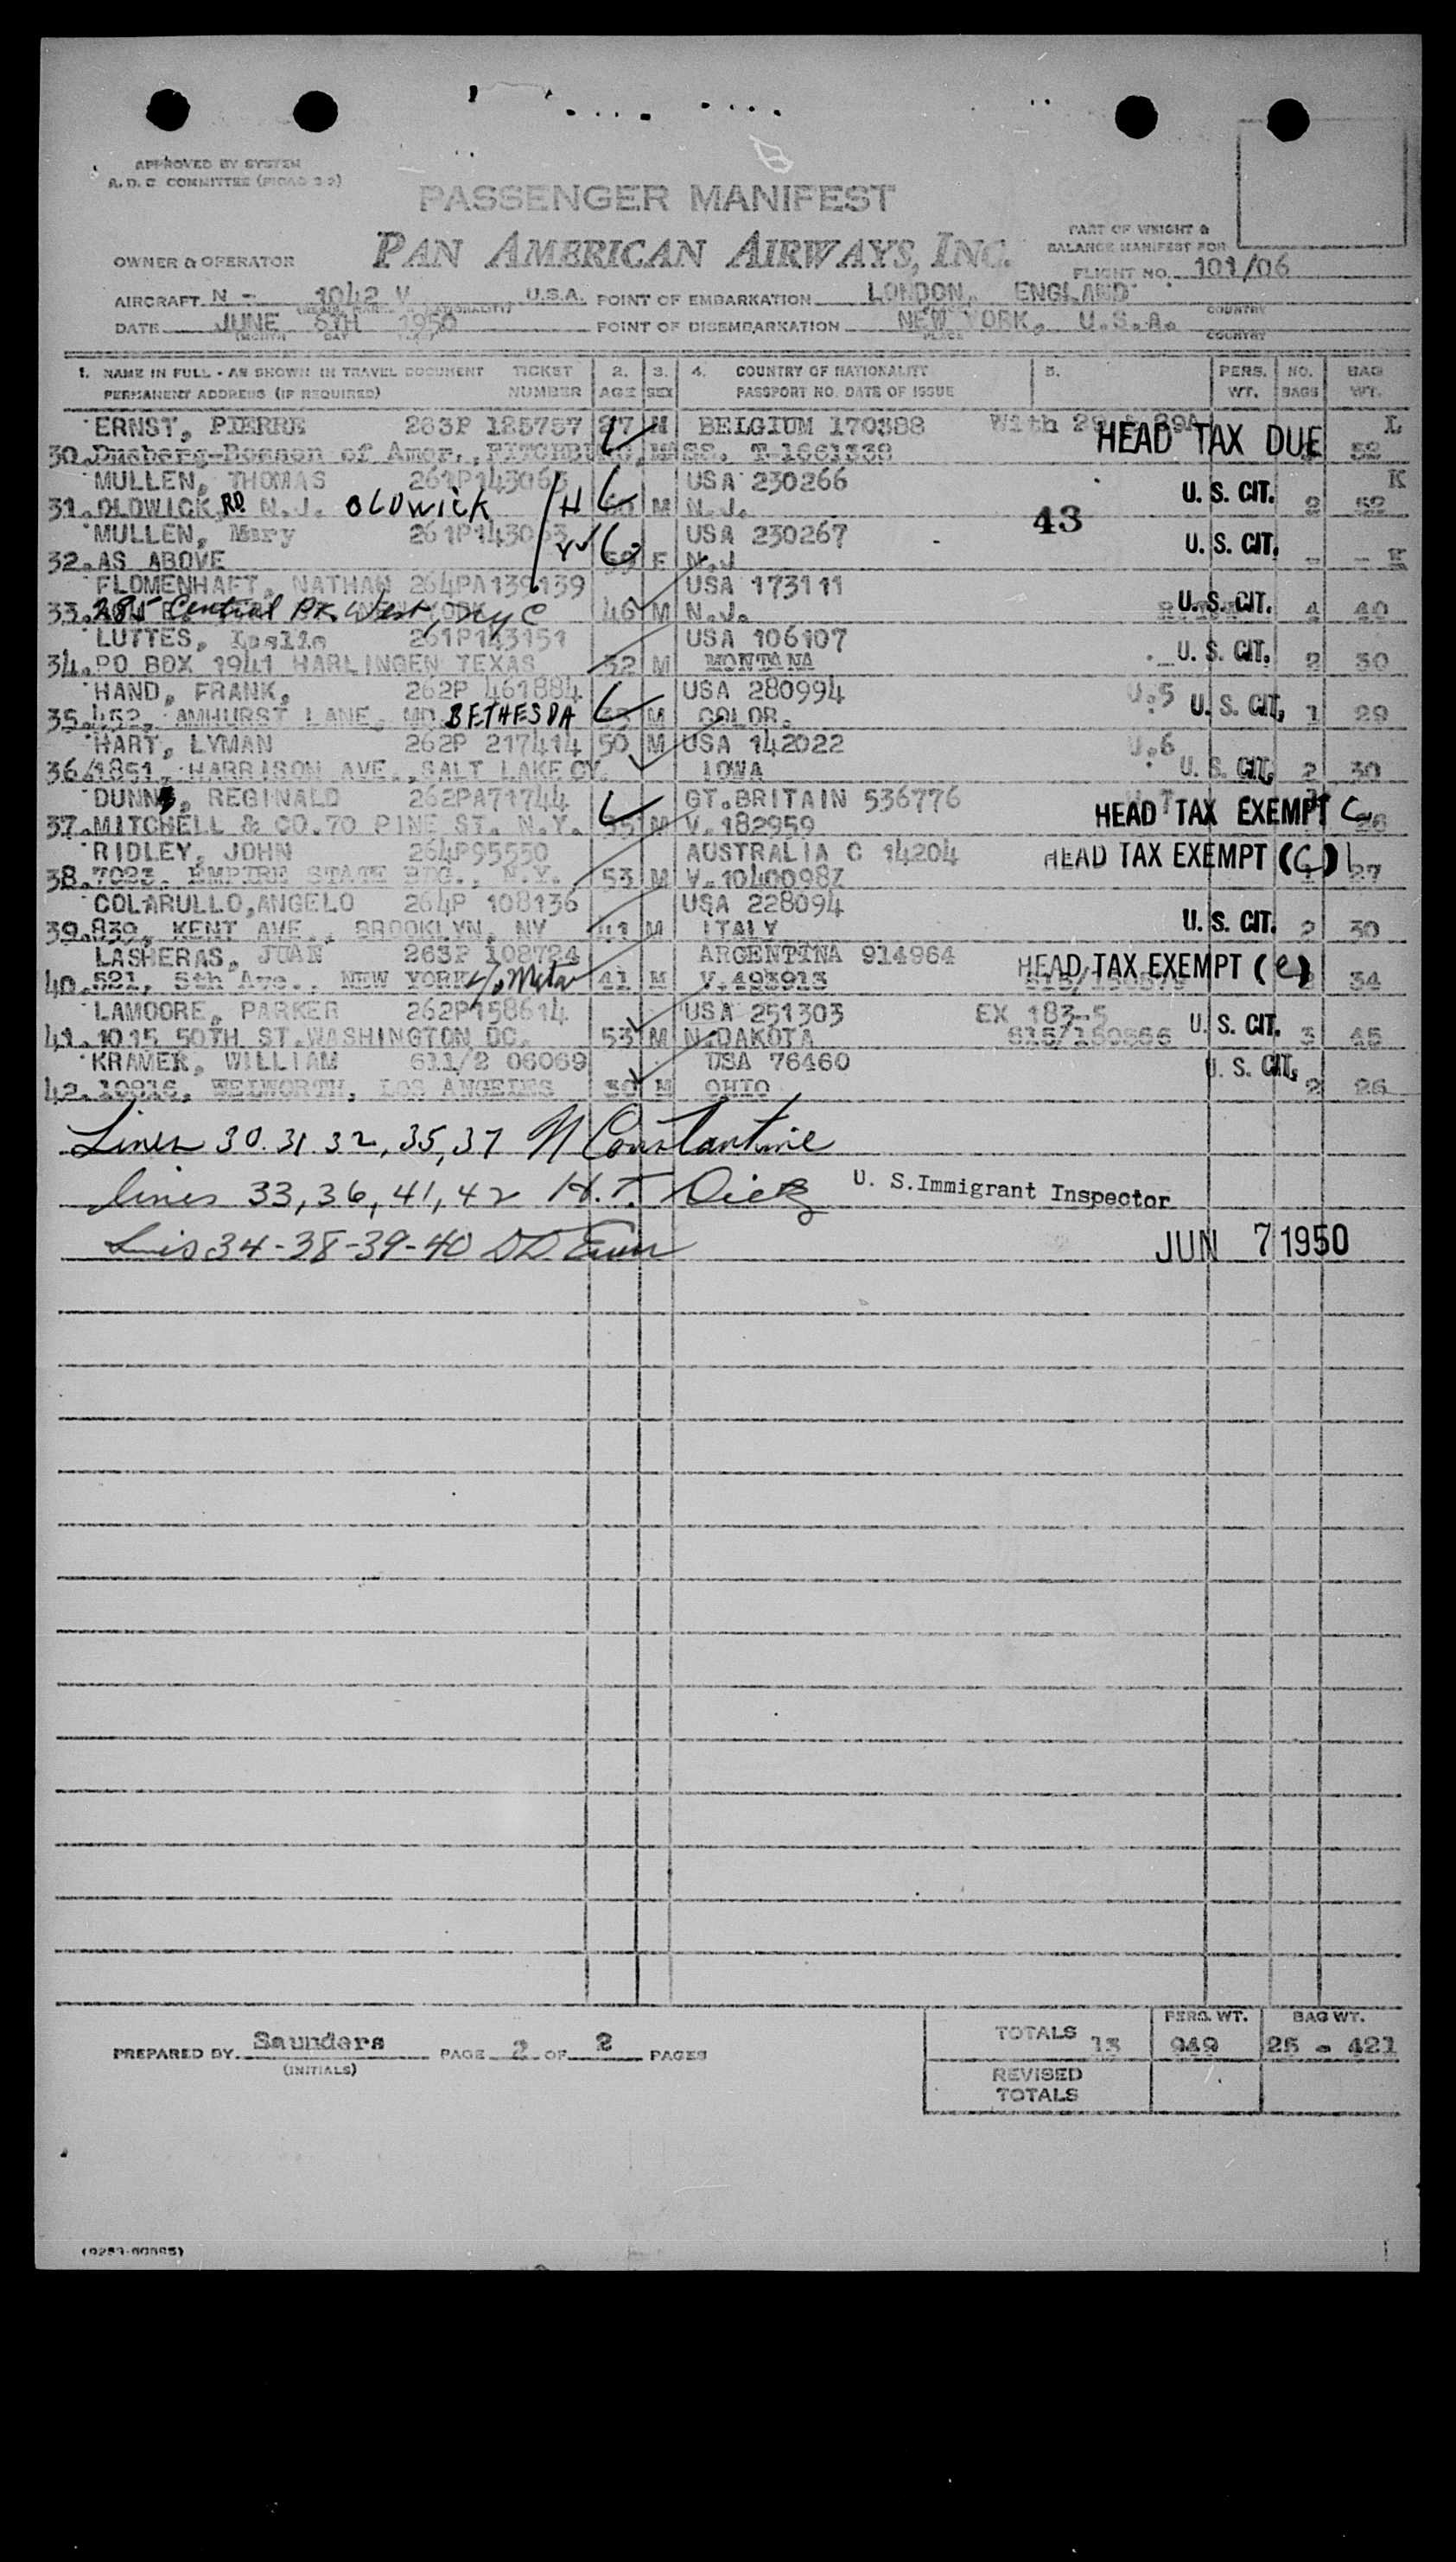 APPROVED BY SYSTEM
A. D. C. COMMITTEE
PASSENGER MANIFEST
PAN AMERICAN AIRWAYS, INC.
PART OF WEIGHT &
BALANCE MANIFEST FOR
OWNER & OPERATOR
FLIGHT NO. 101/06
AIRCRAFT N - 1042 V U.S.A. POINT OF EMBARKATION LONDON, ENGLAND COUNTRY
DATE JUNE 6TH 1950 POINT OF DISEMBARKATION NEW YORK, U.S.A.
MONTH DAY PLACE COUNTRY
1. NAME IN FULL - AS SHOWN IN TRAVEL DOCUMENT TICKET 2. 3. 4. COUNTRY OF NATIONALITY 5. PERS. NO. BAG
PERMANENT ADDRESS (IF REQUIRED) NUMBER AGE SEX PASSPORT NO. DATE OF ISSUE WT. BAGS WT.
ERNST, PIERRE 263P 125757 27 M BELGIUM 170388 With HEAD TAX DUE L
30. of Amer., MASS. T-1661339 52
MULLEN, THOMAS 261P143063 USA 230266 K
31. OLDWICK, RD N.J. OLDWICK H M N.J. 43 U. S. CIT. 2 52
MULLEN, Mary USA 230267
32. AS ABOVE F N.J U. S. CIT. - -
FLOMENHAFT, NATHAN 264PA139139 USA 173111
33. 285 Central Pk West, NYC 46 M N.J. U. S. CIT. 4 40
LUTTES, Leslie 261P143151 USA 106107
34. PO BOX 1941 HARLINGEN TEXAS 52 M MONTANA U. S. CIT. 2 30
HAND, FRANK, 262P 461884 USA 280994 U.5
35. 452, AMHURST LANE, MD BETHESDA M COLOR. U. S. CIT. 1 29
HART, LYMAN 262P 217414 50 M USA 142022 U.6
36/1851, HARRISON AVE., SALT LAKE CY. IOWA U. S. CIT. 2 30
DUNN, REGINALD 262PA71744 GT.BRITAIN 536776
37. MITCHELL & CO. 70 PINE ST. N.Y. 55 M V.182959 HEAD TAX EXEMPT C 26
RIDLEY, JOHN 264P95550 AUSTRALIA C 14204 HEAD TAX EXEMPT (C)
38. 7023, EMPIRE STATE BDG., N.Y. 53 M V.1040098Z 27
COLARULLO, ANGELO 264P 108136 USA 228094
39. 839, KENT AVE., BROOKLYN, NY 41 M ITALY U. S. CIT. 2 30
LASHERAS, JUAN 263P 108724 ARGENTINA 914964 HEAD TAX EXEMPT (C)
40. 521, 5th Ave., NEW YORK 41 M V.493913 34
LAMOORE, PARKER 262P158614 USA 251303 EX 183-5
41. 1015 50TH ST. WASHINGTON DC. 53 M N.DAKOTA U. S. CIT. 3 45
KRAMER, WILLIAM 611/2 06069 USA 76460 U. S. CIT.
42. 10816, WELWORTH, LOS ANGELES 50 M OHIO 2 26
Lines 30. 31. 32, 35, 37 N Constantine
lines 33, 36, 41, 42 H.T. Dietz U. S.Immigrant Inspector
34-38-39-40 JUN 7 1950
TOTALS 13 PERS. WT. 949 BAG WT. 25 - 421
PREPARED BY Saunders PAGE 2 OF 2 PAGES
(INITIALS)
REVISED
TOTALS